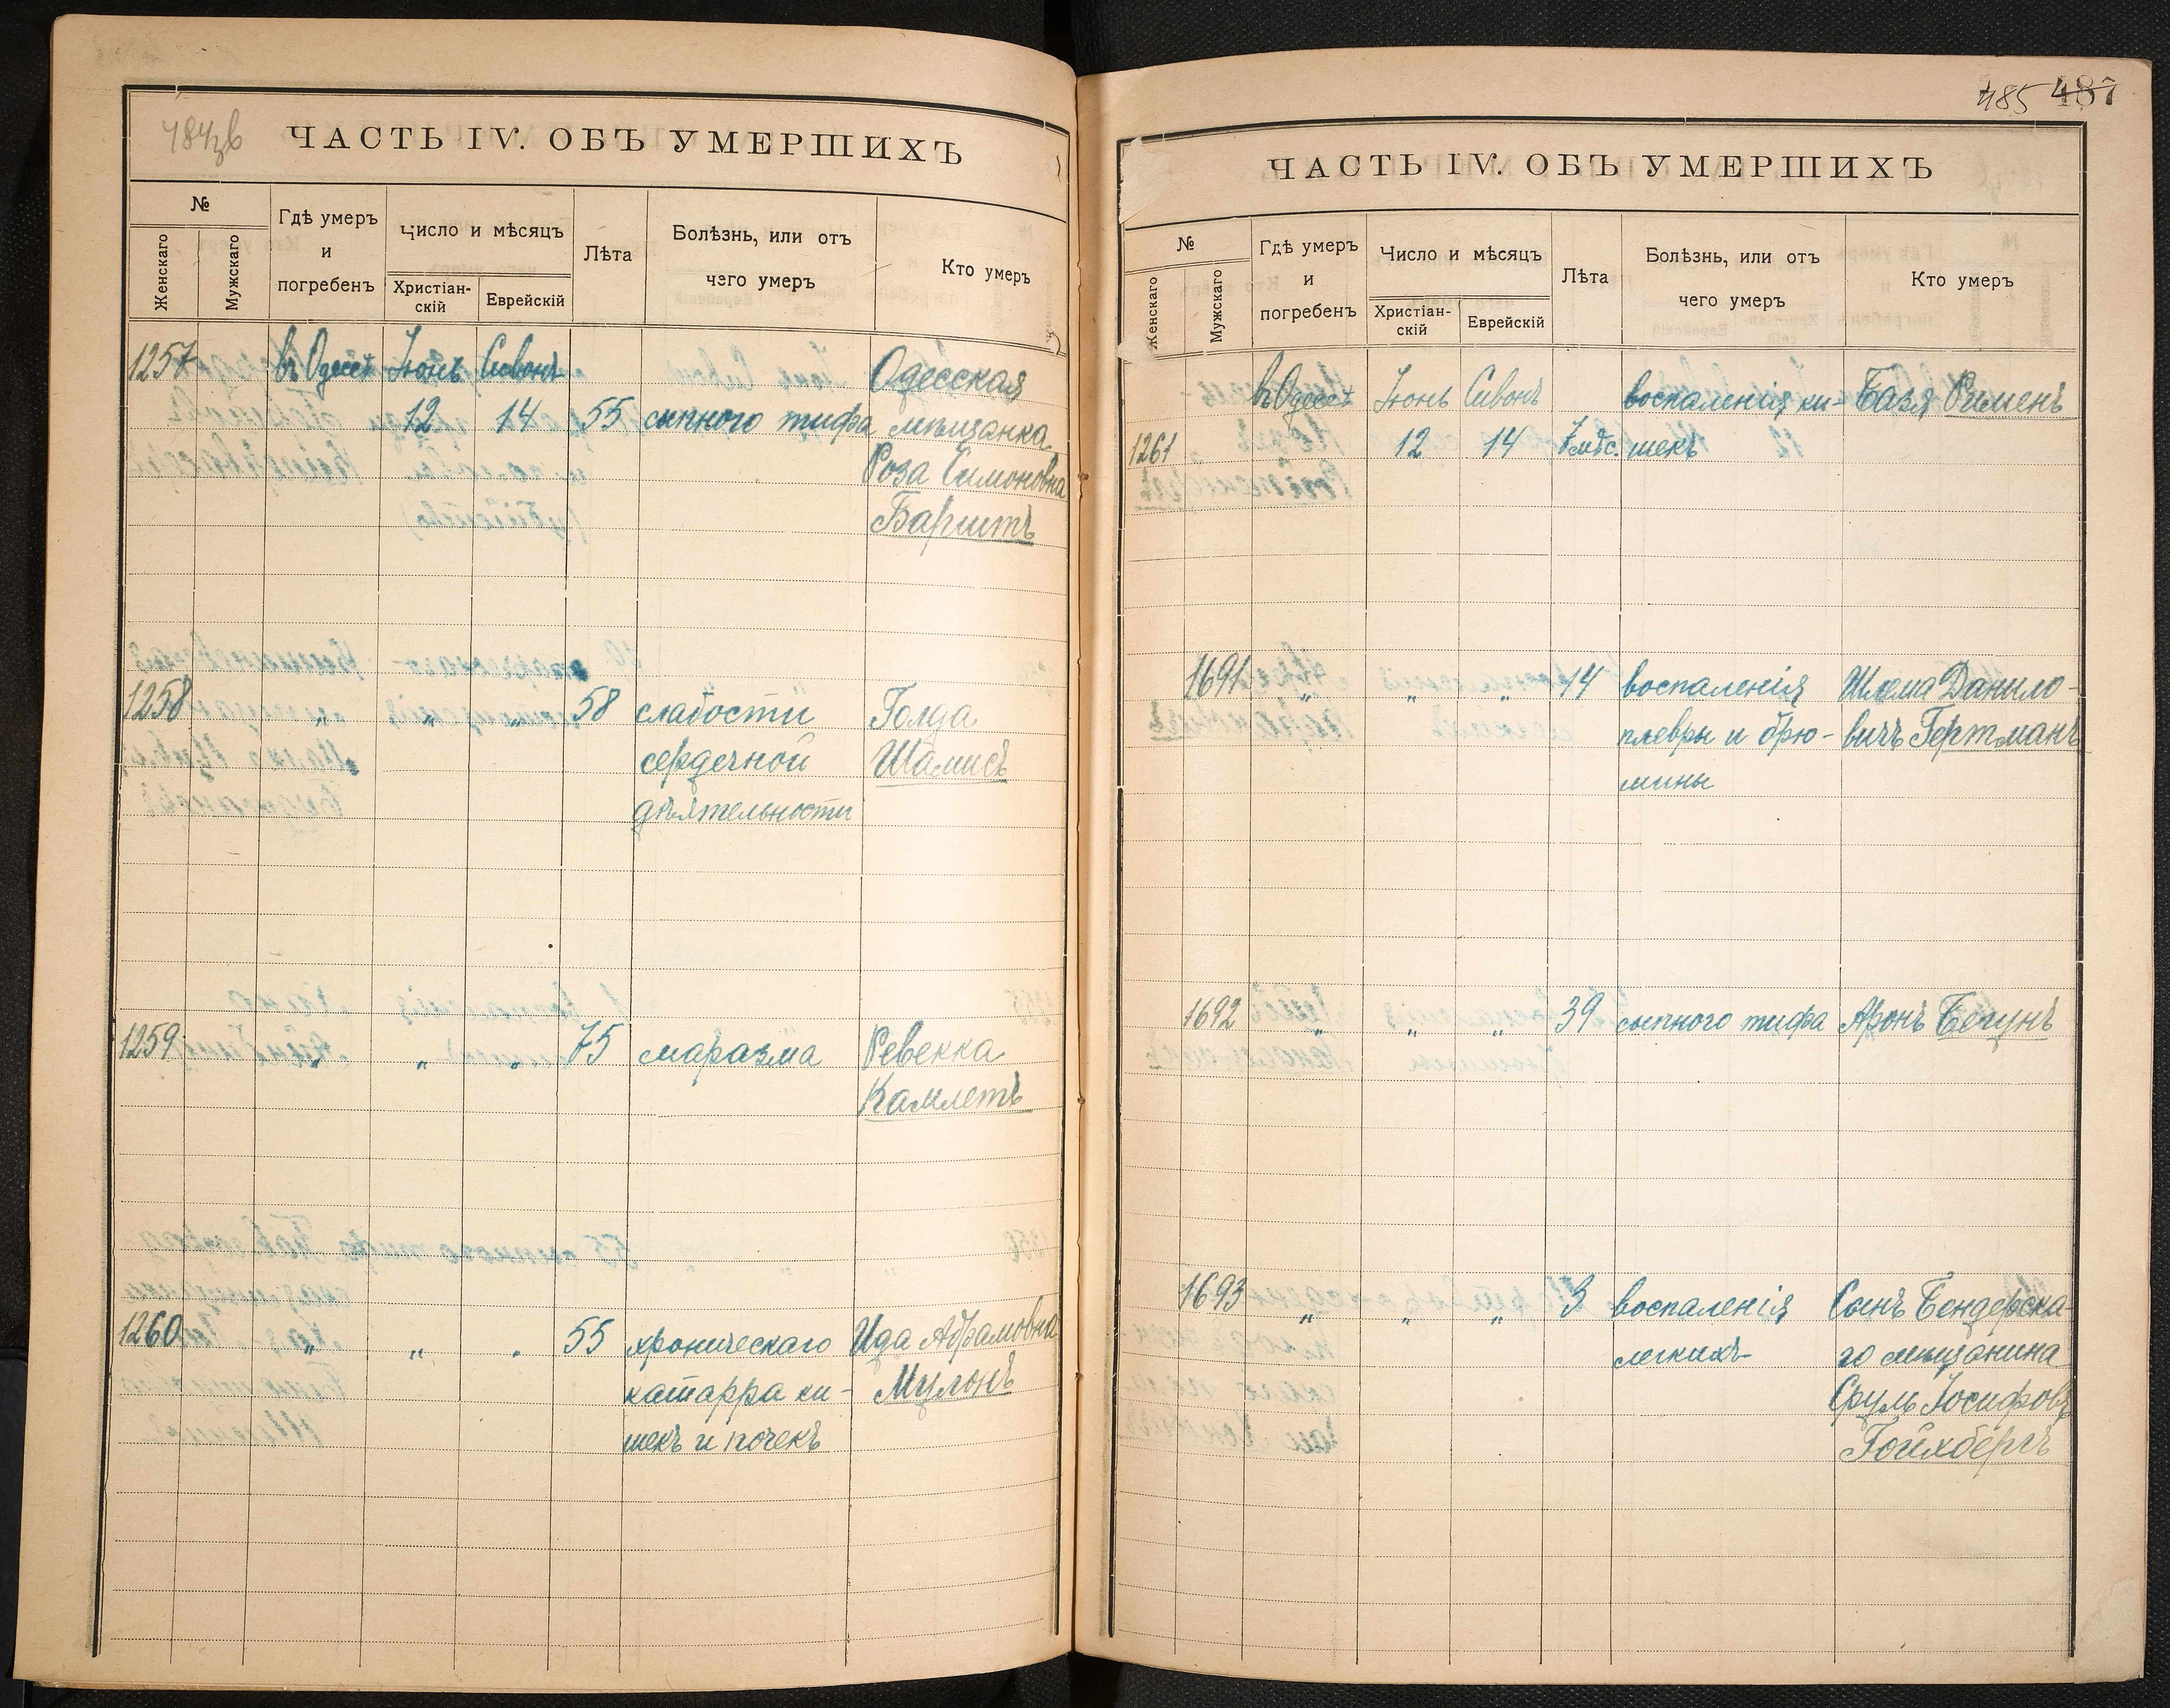 484зв
ЧАСТЬ IV. ОБЪ УМЕРШИХЪ
№
Женскаго
Мужскаго
Гдѣ умеръ
и
погребенъ
Число и мѣсяцъ
Христіан-
скій
Еврейскій
Лѣта
Болѣзнь, или отъ
чего умеръ
Кто умеръ
1257 въ Одессѣ Іюнь Сивонъ Одесская
12 14 55 сыпного тифа мѣщанка
Роза Симоновна
Баршть
1258 " " " 58 слабости Голда
сердечной Шамисъ
дѣятельности
1259 " " " 75 маразма Ревекка
Камлетъ
1260 " " " 55 хроническаго Ида Абрамовна
катарра ки-
шекъ и почекъ
485 487
ЧАСТЬ IV. ОБЪ УМЕРШИХЪ
№
Женскаго
Мужскаго
Гдѣ умеръ
и
погребенъ
Число и мѣсяцъ
Христіан-
скій
Еврейскій
Лѣта
Болѣзнь, или отъ
чего умеръ
Кто умеръ
въ Одессѣ Іюнь Сивонъ воспаленія ки- Базя Рименъ
1261 12 14 7 мѣс. шекъ
1691 " " " 14 воспаленія Шлема Данило-
плевры и брю- вичъ Гертманъ
шины
1692 " " " 39 сыпного тифа Аронъ Бегунъ
1693 " " " 3 воспаленія Сынъ Бендерска-
легкихъ го мѣщанина
Сруль Іосифовъ
Гойхбергъ